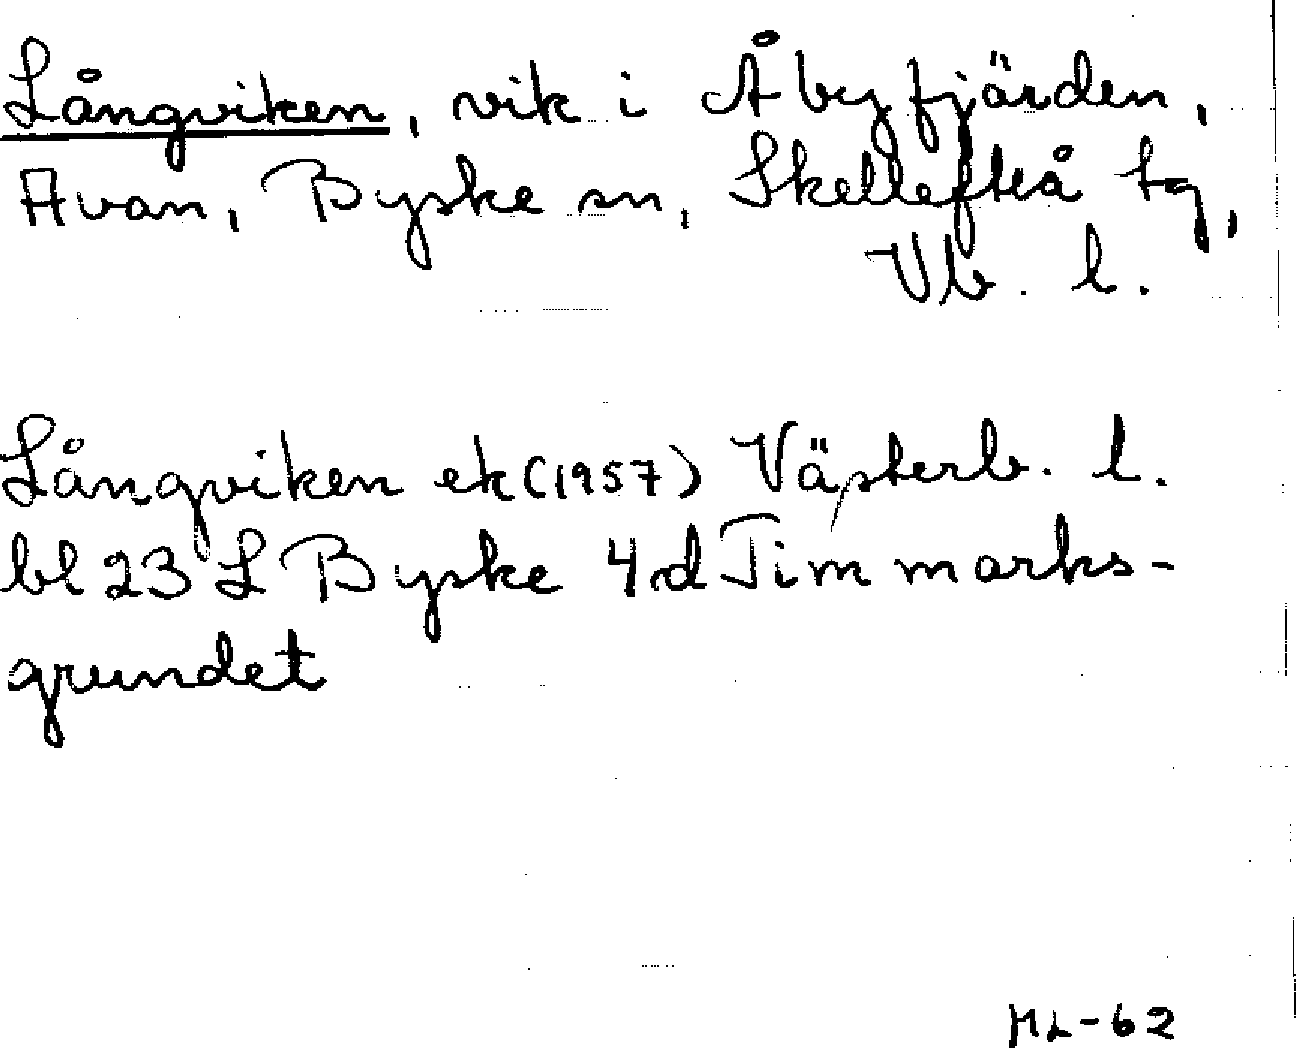 Långviken, vik i Åbyfjärden,
Avan, Byske sn, Skellefteå tg,
Vb. l.
Långviken ek (1957) Västerb. l.
bl 23 L Byske 4 d Timmarks-
grundet
ML-62